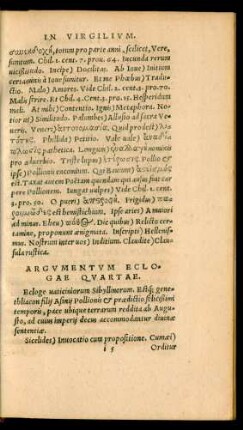 IN VIRGILIVM.
totum pro parte anni, scilicet, Vere,
Chil. 1. cent. 7. prou. 64. Incunda rerum
uicissitudo. Incipe) Docilitas. Ab Ioue) Initium
certaminis à Ioue sumitur. Et me Phœbus) Traductio.
Malo) Amores. Vide Chil. 2. cent. 4. pro. 70.
Malo ferire. Et Chil. 4. Cent. 3. pro. 15. Hesperidum
mala. At mihi) Contentio. Ignis) Metaphora. Notior
ut) Similitudo. Palumbes) Allusio ad sacra Veneris.
Veneri) Quid prodest)
Phillida) Petitio. Vale uale)
pathetica. Longum)
pro aduerbio. Triste lupus) Pollio &
ipse) Pollionis encomium. Qui Bauium)
est. Taxat autem Poetam quendam qui ausus sit carpere
Pollionem. Iungat uulpes) Vide Chil. 1. cent.
3. pro. 50. O pueri) Frigidus)
est bennstichium. Ipse aries) Amouet
ad ninus. Eheu) Dic quibus) Relicto certamine,
proponunt ænigmata. Inscripti) Hellenismus.
Nostrum inter uos) Inditium. Claudite) Clausula
rustica.
ARGVMENTVM ECLOGAE
QVARTAE.
Ecloge uaticiniorum Sibyllinorum. Estque genethliacon
filij Asinij Pollionis & prædictio felicissimi
temporis, pace ubique terrarum reddita ab Augusto,
ad cuius imperij decus accommodantur diuinæ
sententiæ.
Sicelides) Inuocatio cum propositione. Cumæi)
i 5 Orditur